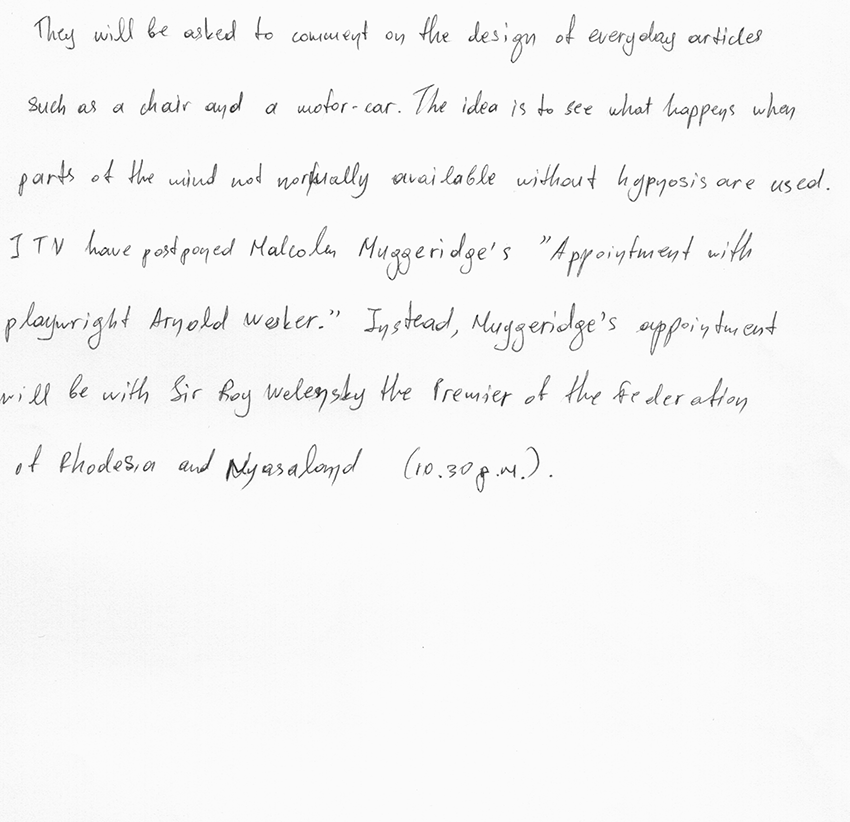 They will be asked to comment on the design of everyday articles
such as a chair and a motor-car. The idea is to see what happens when
parts of the mind not normally available without hypnosis are used.
ITV have postponed Malcolm Muggeridge's "Appointment with
playwright Arnold Wesker." Instead, Muggeridge's appointment
will be with Sir Roy Welensky the Premier of the Federation
of Rhodesia and Nyasaland (10.30 p.m.).